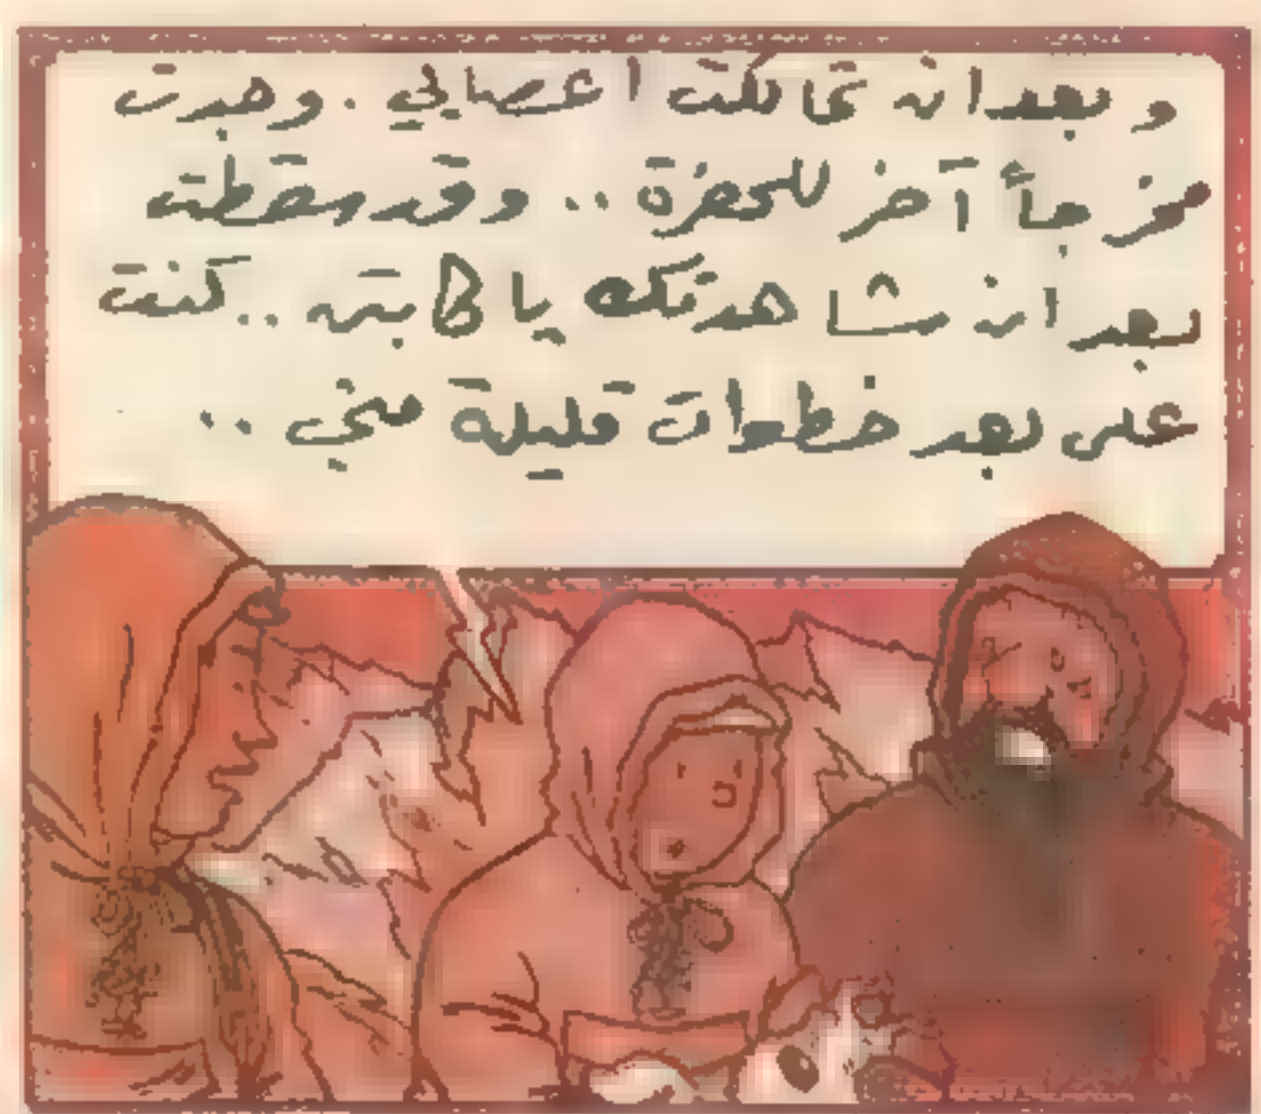 و بعد ان تمالكت اعصابي . وجدت
مخرجاً آخر للحفرة .. وقد سقطت
بعد ان شاهدتك يا كابتن .. كنت
على بعد خطوات قليلة مني ..